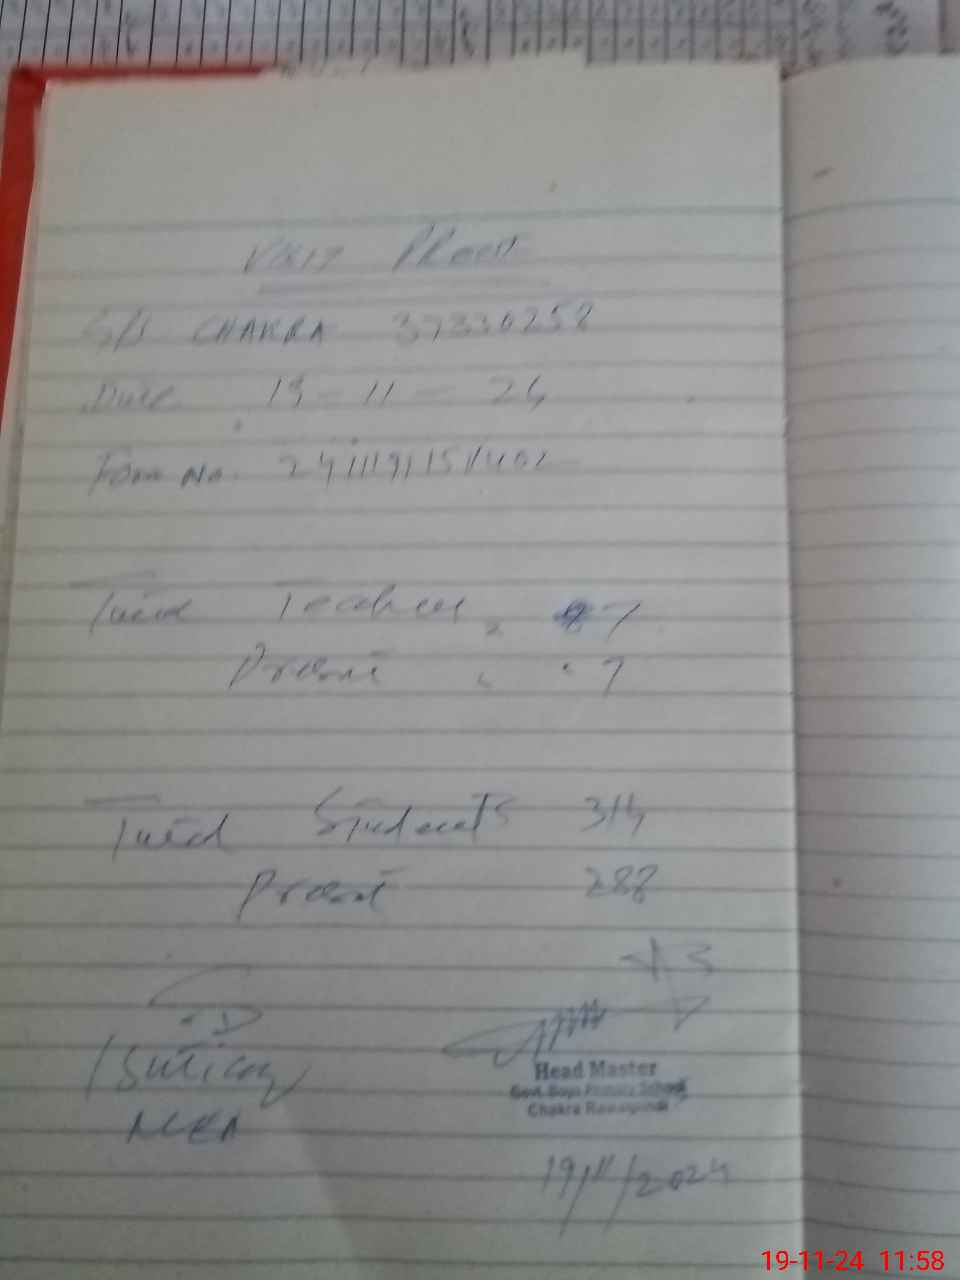 Visit Proof
G/S CHAKRA 37330258
Date 19-11-24
Form No. 2411191151402
Total Teachers 7
Present 7
Total Students 314
Present 288
NCEA
Head Master
Govt. Boys Primary School
Chakra Rawalpindi
19/11/2024
19-11-24 11:58